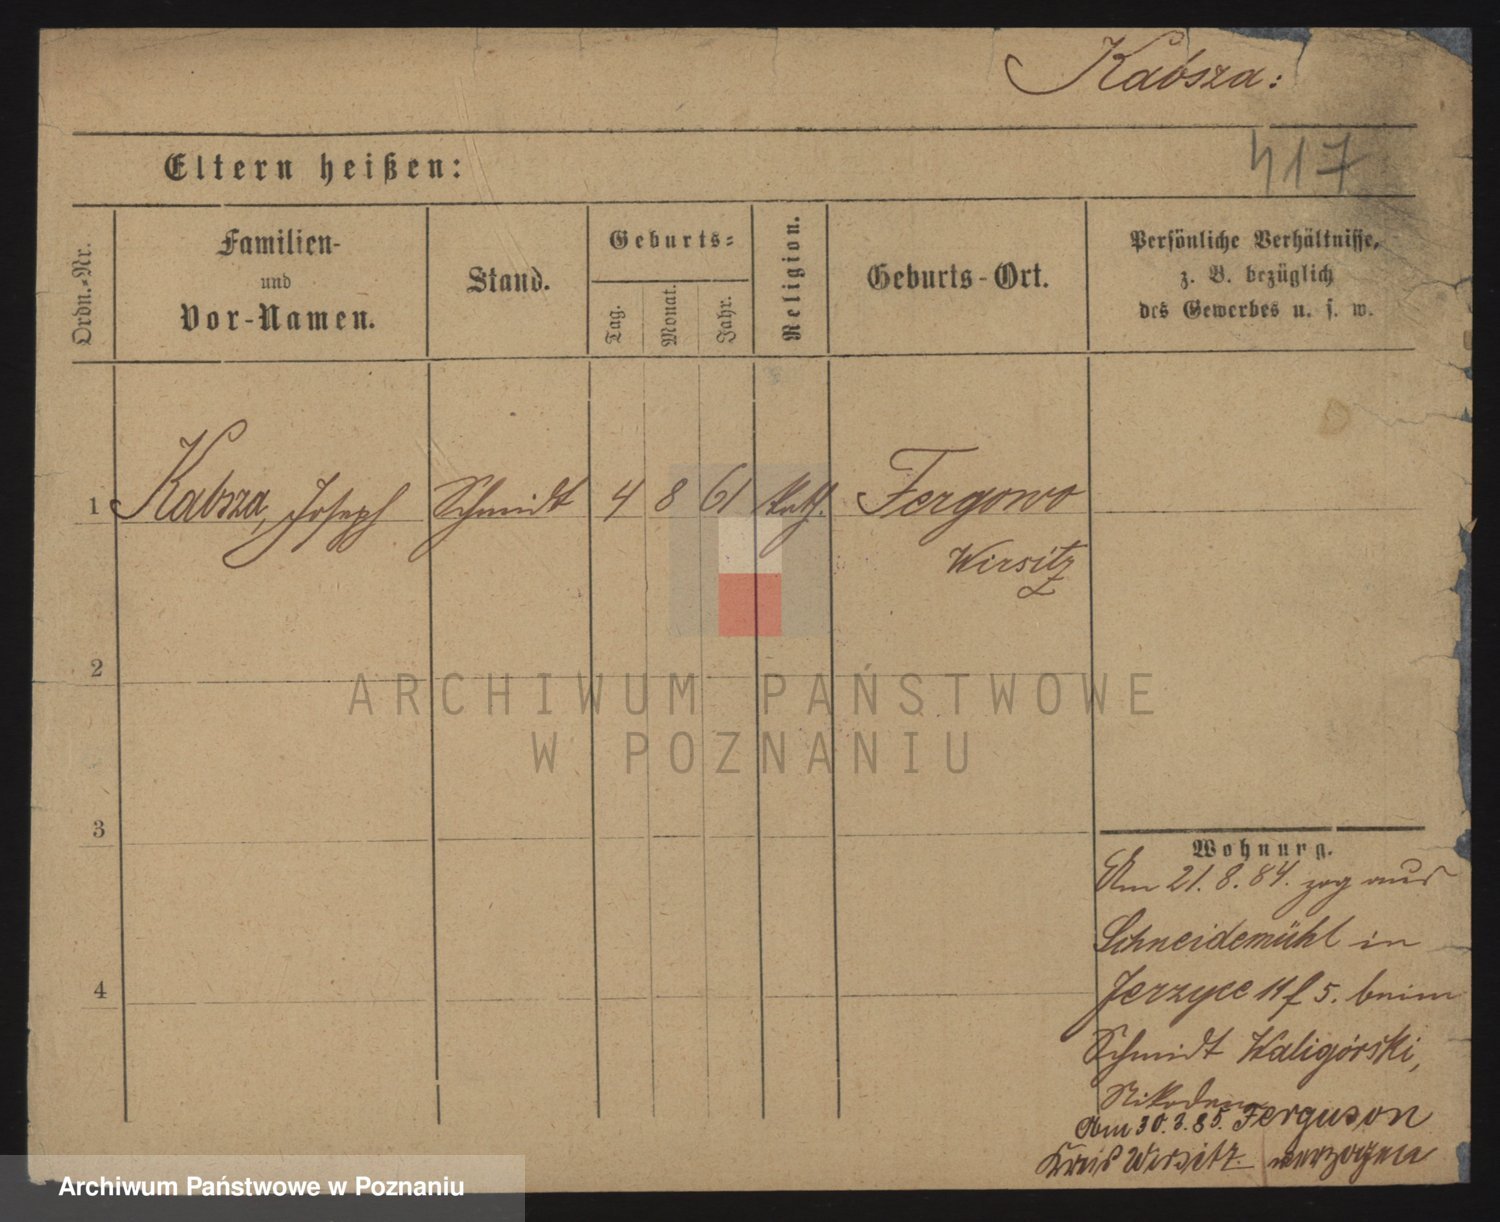 Kabsza:
417
Eltern heißen:
Ordn.-Nr.
Familien-
und
Vor-Namen.
Stand.
Geburts-
Tag.
Monat.
Jahr.
Religion.
Geburts-Ort.
Persönliche Verhältnisse,
z. B. bezüglich
des Gewerbes u. s. w.
1 Kabsza, Joseph Schmidt 4 8 61 kath. Fergowo
Wirsitz
2
ARCHIWUM PAŃSTWOWE
W POZNANIU
3
Wohnung.
Am 21. 8. 84. zog aus
Schneidemühl in
4
Jerzyce 5. beim
Schmidt Kaligórski,
Nikodem
Am 30. 3. 85. Ferguson
Kreis Wirsitz verzogen
Archiwum Państwowe w Poznaniu